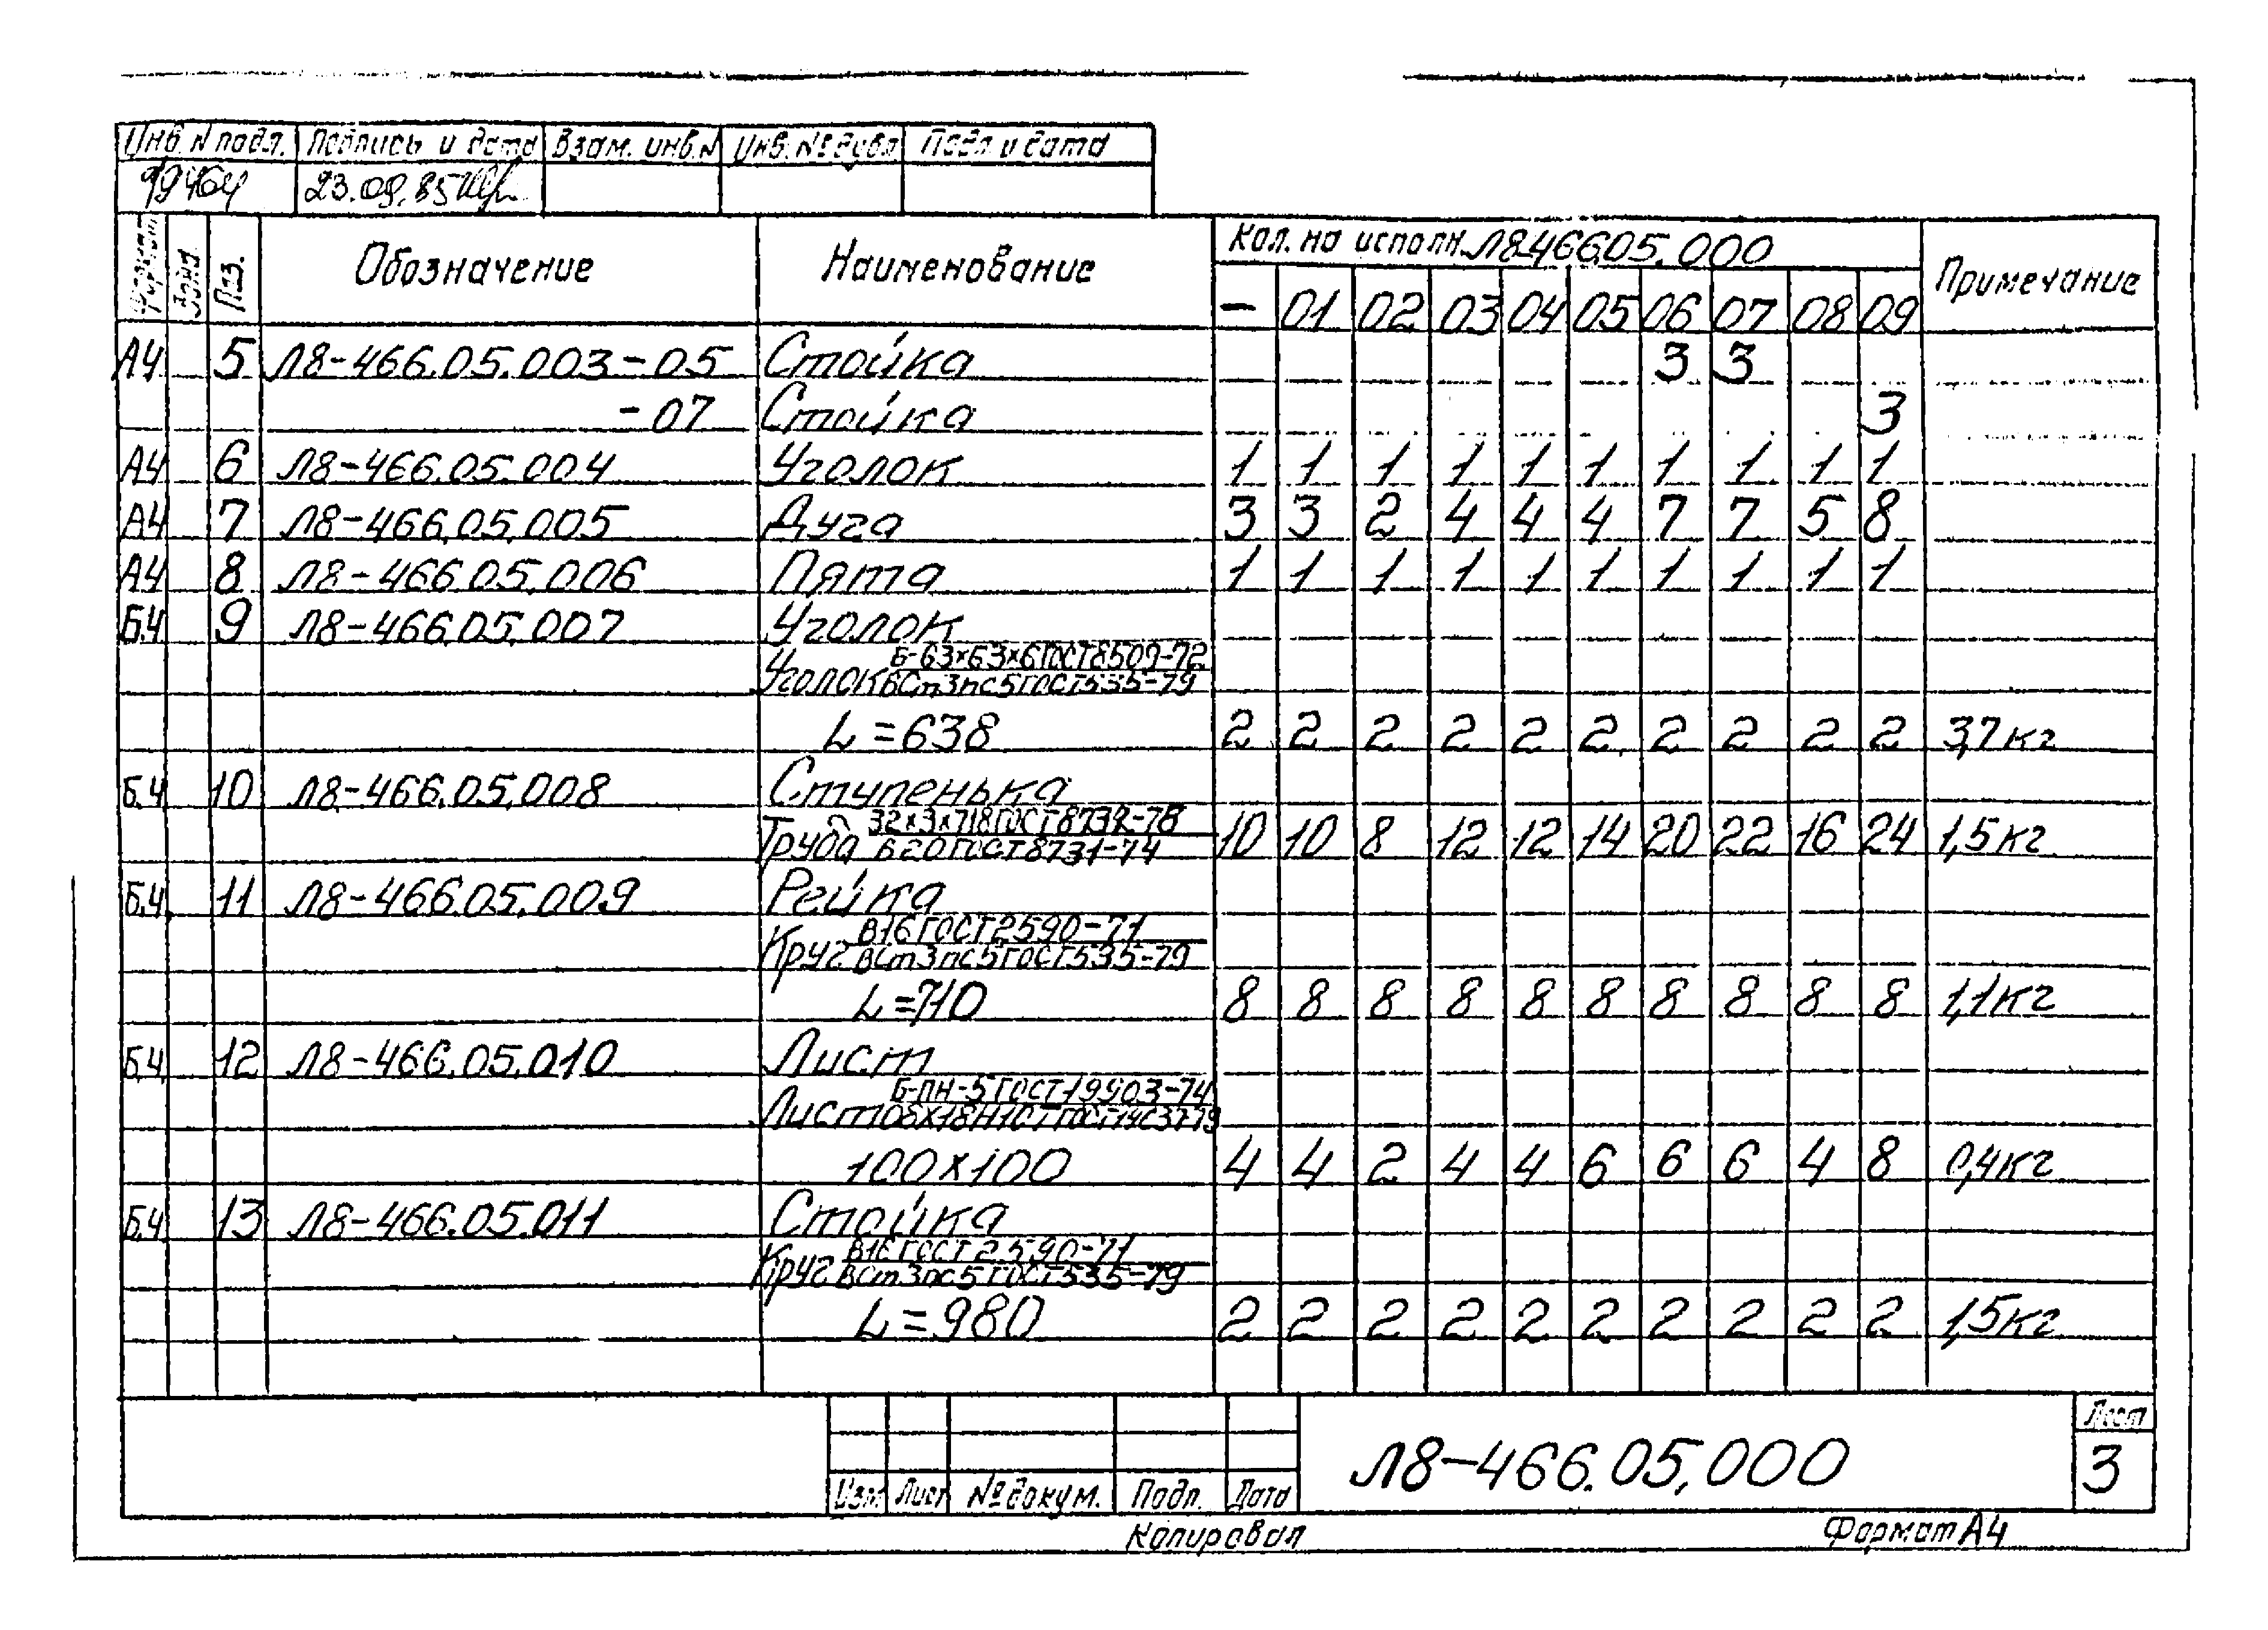 Инв. N подл. Подпись и дата Взам. инв. N Инв. № дубл Подп и дата
19464 23.09.85
Формат Зона Поз. Обозначение Наименование Кол. на исполн. Л8-466.05.000 Примечание
– 01 02 03 04 05 06 07 08 09
А4 5 Л8-466.05.003-05 Стойка 3 3
-07 Стойка 3
А4 6 Л8-466.05.004 Уголок 1 1 1 1 1 1 1 1 1 1
А4 7 Л8-466.05.005 Дуга 3 3 2 4 4 4 7 7 5 8
А4 8 Л8-466.05.006 Пята 1 1 1 1 1 1 1 1 1 1
Б.4 9 Л8-466.05.007 Уголок
Б-63×63×6 ГОСТ 8509-72
Уголок ВСт3пс5 ГОСТ 535-79
L=638 2 2 2 2 2 2 2 2 2 2 3,7кг
Б.4 10 Л8-466.05.008 Ступенька
32×3×718 ГОСТ 8732-78
Труба В20 ГОСТ 8731-74 10 10 8 12 12 14 20 22 16 24 1,5кг
Б.4 11 Л8-466.05.009 Рейка
В16 ГОСТ 2590-71
Круг ВСт3пс5 ГОСТ 535-79
L=710 8 8 8 8 8 8 8 8 8 8 1,1кг
Б.4 12 Л8-466.05.010 Лист
Б-ПН-5 ГОСТ 19903-74
Лист
100×100 4 4 2 4 4 6 6 6 4 8 0,4кг
Б.4 13 Л8-466.05.011 Стойка
В16 ГОСТ 2590-71
Круг ВСт3пс5 ГОСТ 535-79
L=980 2 2 2 2 2 2 2 2 2 2 1,5кг
Изм Лист № докум. Подп. Дата
Л8-466.05.000
Лист
3
Копировал
Формат А4